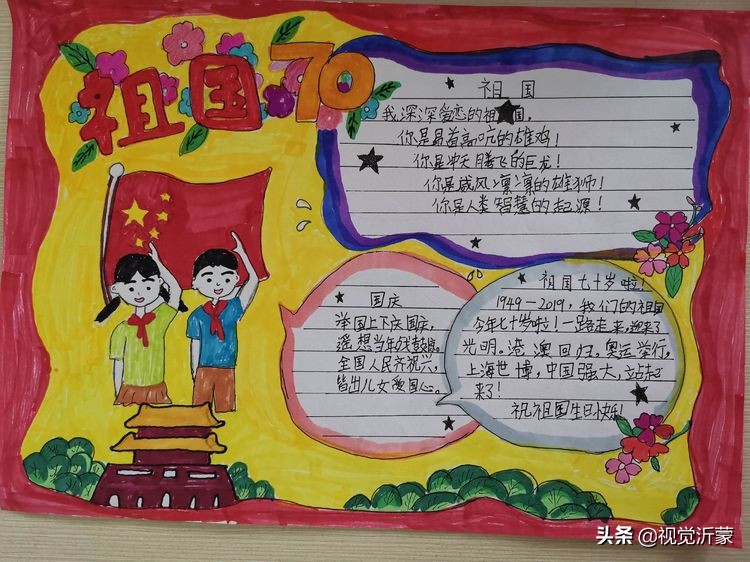 祖国70
祖国
我深深爱恋的祖国,
你是昂首高吭的雄鸡!
你是冲天腾飞的巨龙!
你是威风凛凛的雄狮!
你是人类智慧的起源!
国庆
举国上下庆国庆,
遥想当年战鼓
全国人民齐祝兴,
皆出儿女爱国心。
祖国七十岁啦!
1949-2019,我们的祖国
今年七十岁啦!一路走来,迎来了
光明。港澳回归。奥运举行,
上海世博,中国强大,站起
来了!
祝祖国生日快乐!
头条 @视觉沂蒙